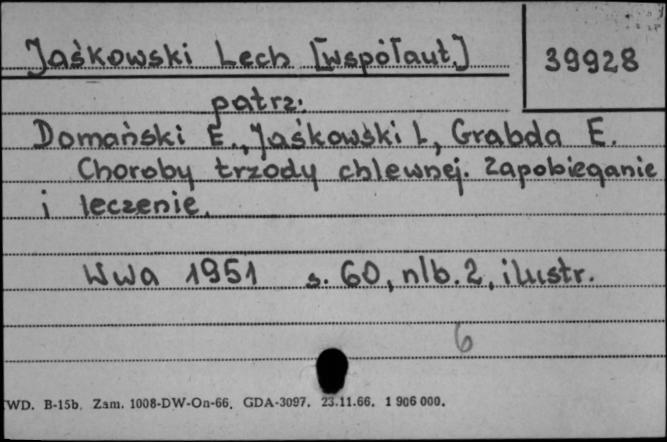 Jaśkowski Lech [współaut.]
39928
patrz:
Domański E., Jaśkowski L, Grabda E.
Choroby trzody chlewnej. Zapobieganie
i leczenie.
Wwa 1951 s. 60, nlb. 2, ilustr.
6
WD. B-15b. Zam. 1008-DW-On-66. GDA-3097. 23.11.66. 1 906 000.